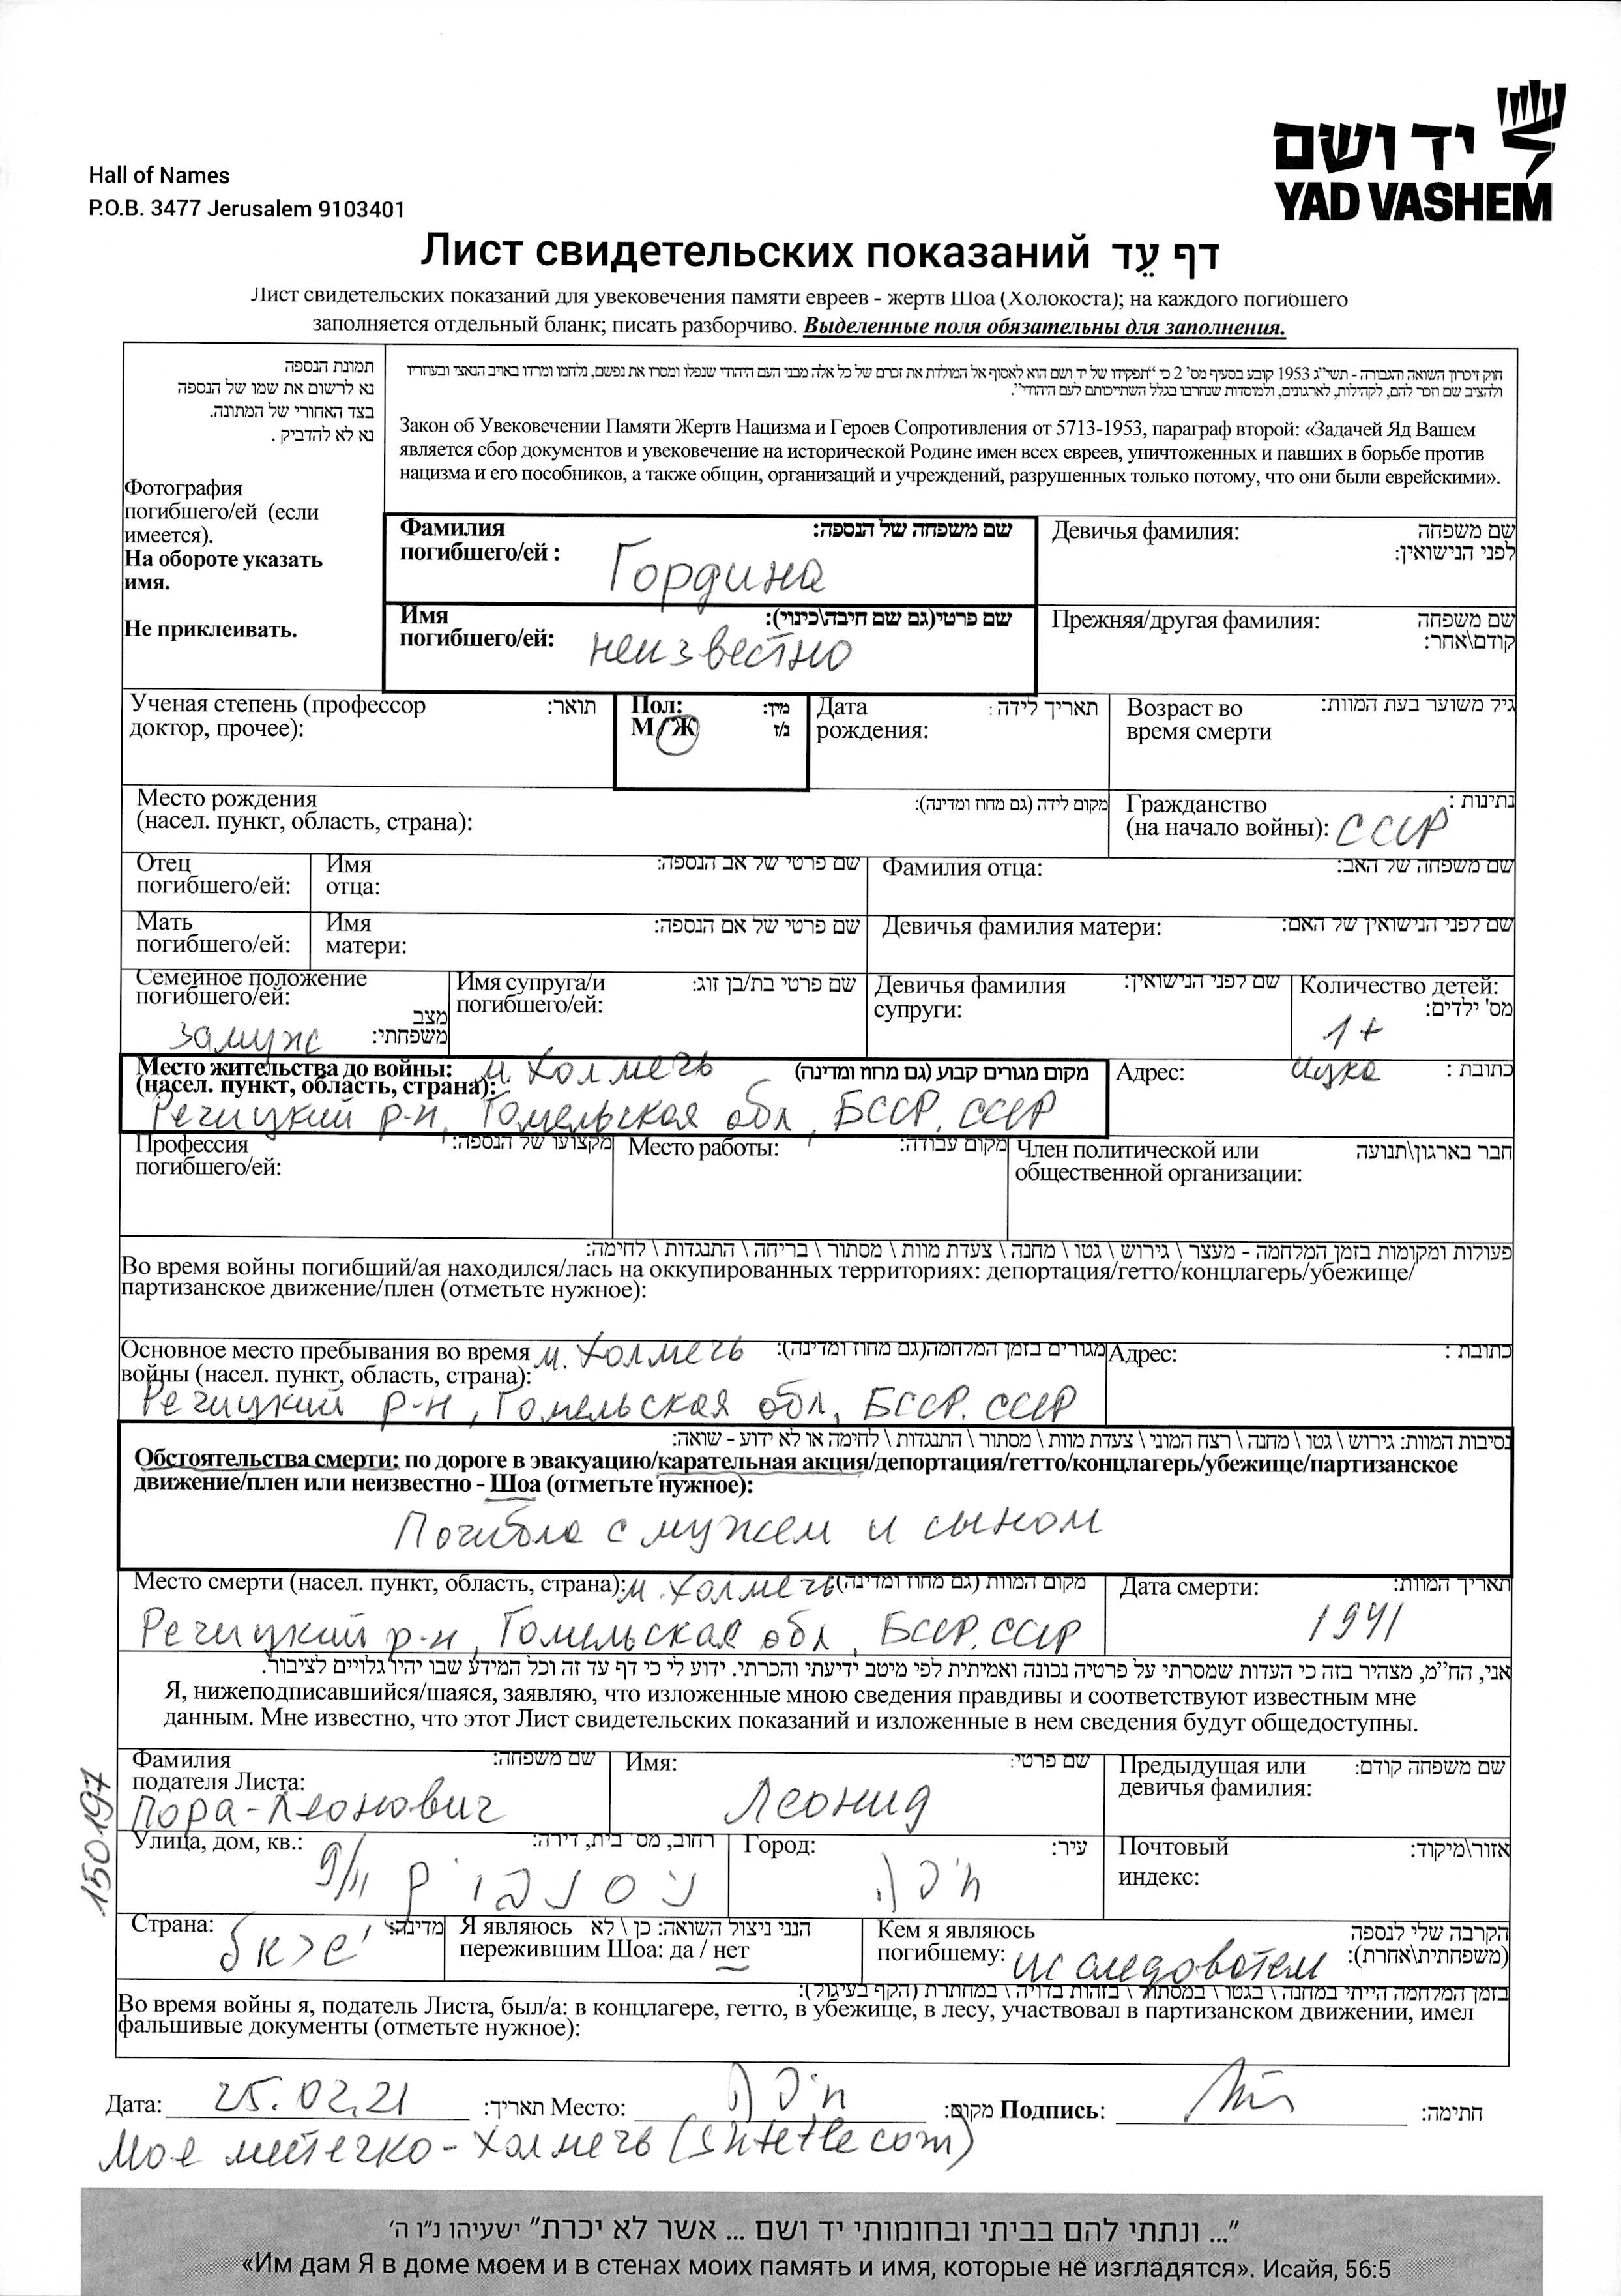 Hall of Names
P.O.B. 3477 Jerusalem 9103401
יד ושם
YAD VASHEM
Лист свидетельских показаний דף עֵד
Лист свидетельских показаний для увековечения памяти евреев - жертв Шоа (Холокоста); на каждого погибшего
заполняется отдельный бланк; писать разборчиво. Выделенные поля обязательны для заполнения.
תמונת הנספה
נא לרשום את שמו של הנספה
בצד האחורי של המתונה.
נא לא להדביק .
Фотография
погибшего/ей (если
имеется).
На обороте указать
имя.
Не приклеивать.
חוק זיכרון השואה והגבורה - תשי"ג 1953 קובע בסעיף מס' 2 כי "תפקידו של יד ושם הוא לאסוף אל המולדת את זכרם של כל אלה מבני העם היהודי שנפלו ומסרו את נפשם, נלחמו ומרדו באויב הנאצי ובעוזריו
ולהציב שם וזכר להם, לקהילות, לארגונים, ולמוסדות שנחרבו בגלל השתייכותם לעם היהודי".
Закон об Увековечении Памяти Жертв Нацизма и Героев Сопротивления от 5713-1953, параграф второй: «Задачей Яд Вашем
является сбор документов и увековечение на исторической Родине имен всех евреев, уничтоженных и павших в борьбе против
нацизма и его пособников, а также общин, организаций и учреждений, разрушенных только потому, что они были еврейскими».
Фамилия שם משפחה של הנספה:
погибшего/ей :
Гордина
Девичья фамилия: שם משפחה
לפני הנישואין:
Имя שם פרטי(גם שם חיבה\כינוי):
погибшего/ей:
неизвестно
Прежняя/другая фамилия: שם משפחה
קודם\אחר:
Ученая степень (профессор תואר:
доктор, прочее):
Пол: מין:
М/Ж ז/נ
Дата תאריך לידה :
рождения:
Возраст во גיל משוער בעת המוות:
время смерти
Место рождения מקום לידה (גם מחוז ומדינה):
(насел. пункт, область, страна):
Гражданство נתינות :
(на начало войны): СССР
Отец
погибшего/ей:
Имя שם פרטי של אב הנספה:
отца:
Фамилия отца: שם משפחה של האב:
Мать
погибшего/ей:
Имя שם פרטי של אם הנספה:
матери:
Девичья фамилия матери: שם לפני הנישואין של האם:
Семейное положение
погибшего/ей:
מצב
משפחתי:
замуж
Имя супруга/и שם פרטי בת/בן זוג:
погибшего/ей:
Девичья фамилия שם לפני הנישואין:
супруги:
Количество детей:
מס' ילדים:
1+
Место жительства до войны: м Холмечь מקום מגורים קבוע (גם מחוז ומדינה)
(насел. пункт, область, страна):
Речицкий р-н, Гомельская обл, БССР, СССР
Адрес: כתובת :
Профессия מקצועו של הנספה:
погибшего/ей:
Место работы: מקום עבודה:
Член политической или חבר בארגון\תנועה
общественной организации:
פעולות ומקומות בזמן המלחמה - מעצר \ גירוש \ גטו \ מחנה \ צעדת מוות \ מסתור \ בריחה \ התנגדות \ לחימה:
Во время войны погибший/ая находился/лась на оккупированных территориях: депортация/гетто/концлагерь/убежище/
партизанское движение/плен (отметьте нужное):
Основное место пребывания во время м. Холмечь מגורים בזמן המלחמה(גם מחוז ומדינה):
войны (насел. пункт, область, страна):
Речицкий р-н, Гомельская обл, БССР, СССР
Адрес: כתובת :
נסיבות המוות: גירוש \ גטו \ מחנה \ רצח המוני \ צעדת מוות \ מסתור \ התנגדות \ לחימה או לא ידוע - שואה:
Обстоятельства смерти: по дороге в эвакуацию/карательная акция/депортация/гетто/концлагерь/убежище/партизанское
движение/плен или неизвестно - Шоа (отметьте нужное):
Погибла с мужем и сыном
Место смерти (насел. пункт, область, страна): м. Холмечь מקום המוות (גם מחוז ומדינה)
Речицкий р-н, Гомельская обл, БССР, СССР
Дата смерти: תאריך המוות:
1941
אני, הח"מ, מצהיר בזה כי העדות שמסרתי על פרטיה נכונה ואמיתית לפי מיטב ידיעתי והכרתי. ידוע לי כי דף עד זה וכל המידע שבו יהיו גלויים לציבור.
Я, нижеподписавшийся/шаяся, заявляю, что изложенные мною сведения правдивы и соответствуют известным мне
данным. Мне известно, что этот Лист свидетельских показаний и изложенные в нем сведения будут общедоступны.
150197
Фамилия שם משפחה:
подателя Листа:
Пора-Леонович
Имя: שם פרטי:
Леонид
Предыдущая или שם משפחה קודם:
девичья фамилия:
Улица, дом, кв.: רחוב, מס' בית, דירה:
9/11
Город: עיר:
חיפה
Почтовый אזור\מיקוד:
индекс:
Страна: מדינה:
ישראל
Я являюсь הנני ניצול השואה: כן \ לא
пережившим Шоа: да / нет
Кем я являюсь הקרבה שלי לנספה
погибшему: исследователь (משפחתית\אחרת):
בזמן המלחמה הייתי במחנה \ בגטו \ במסתור \ בזהות בדויה \ במחתרת (הקף בעיגול):
Во время войны я, податель Листа, был/а: в концлагере, гетто, в убежище, в лесу, участвовал в партизанском движении, имел
фальшивые документы (отметьте нужное):
Дата: 25.02.21 תאריך: Место: חיפה מקום: Подпись: חתימה:
Мое местечко - Холмечь (Shtetle com)
"... ונתתי להם בביתי ובחומותי יד ושם ... אשר לא יכרת" ישעיהו נ"ו ה'
«Им дам Я в доме моем и в стенах моих память и имя, которые не изгладятся». Исайя, 56:5